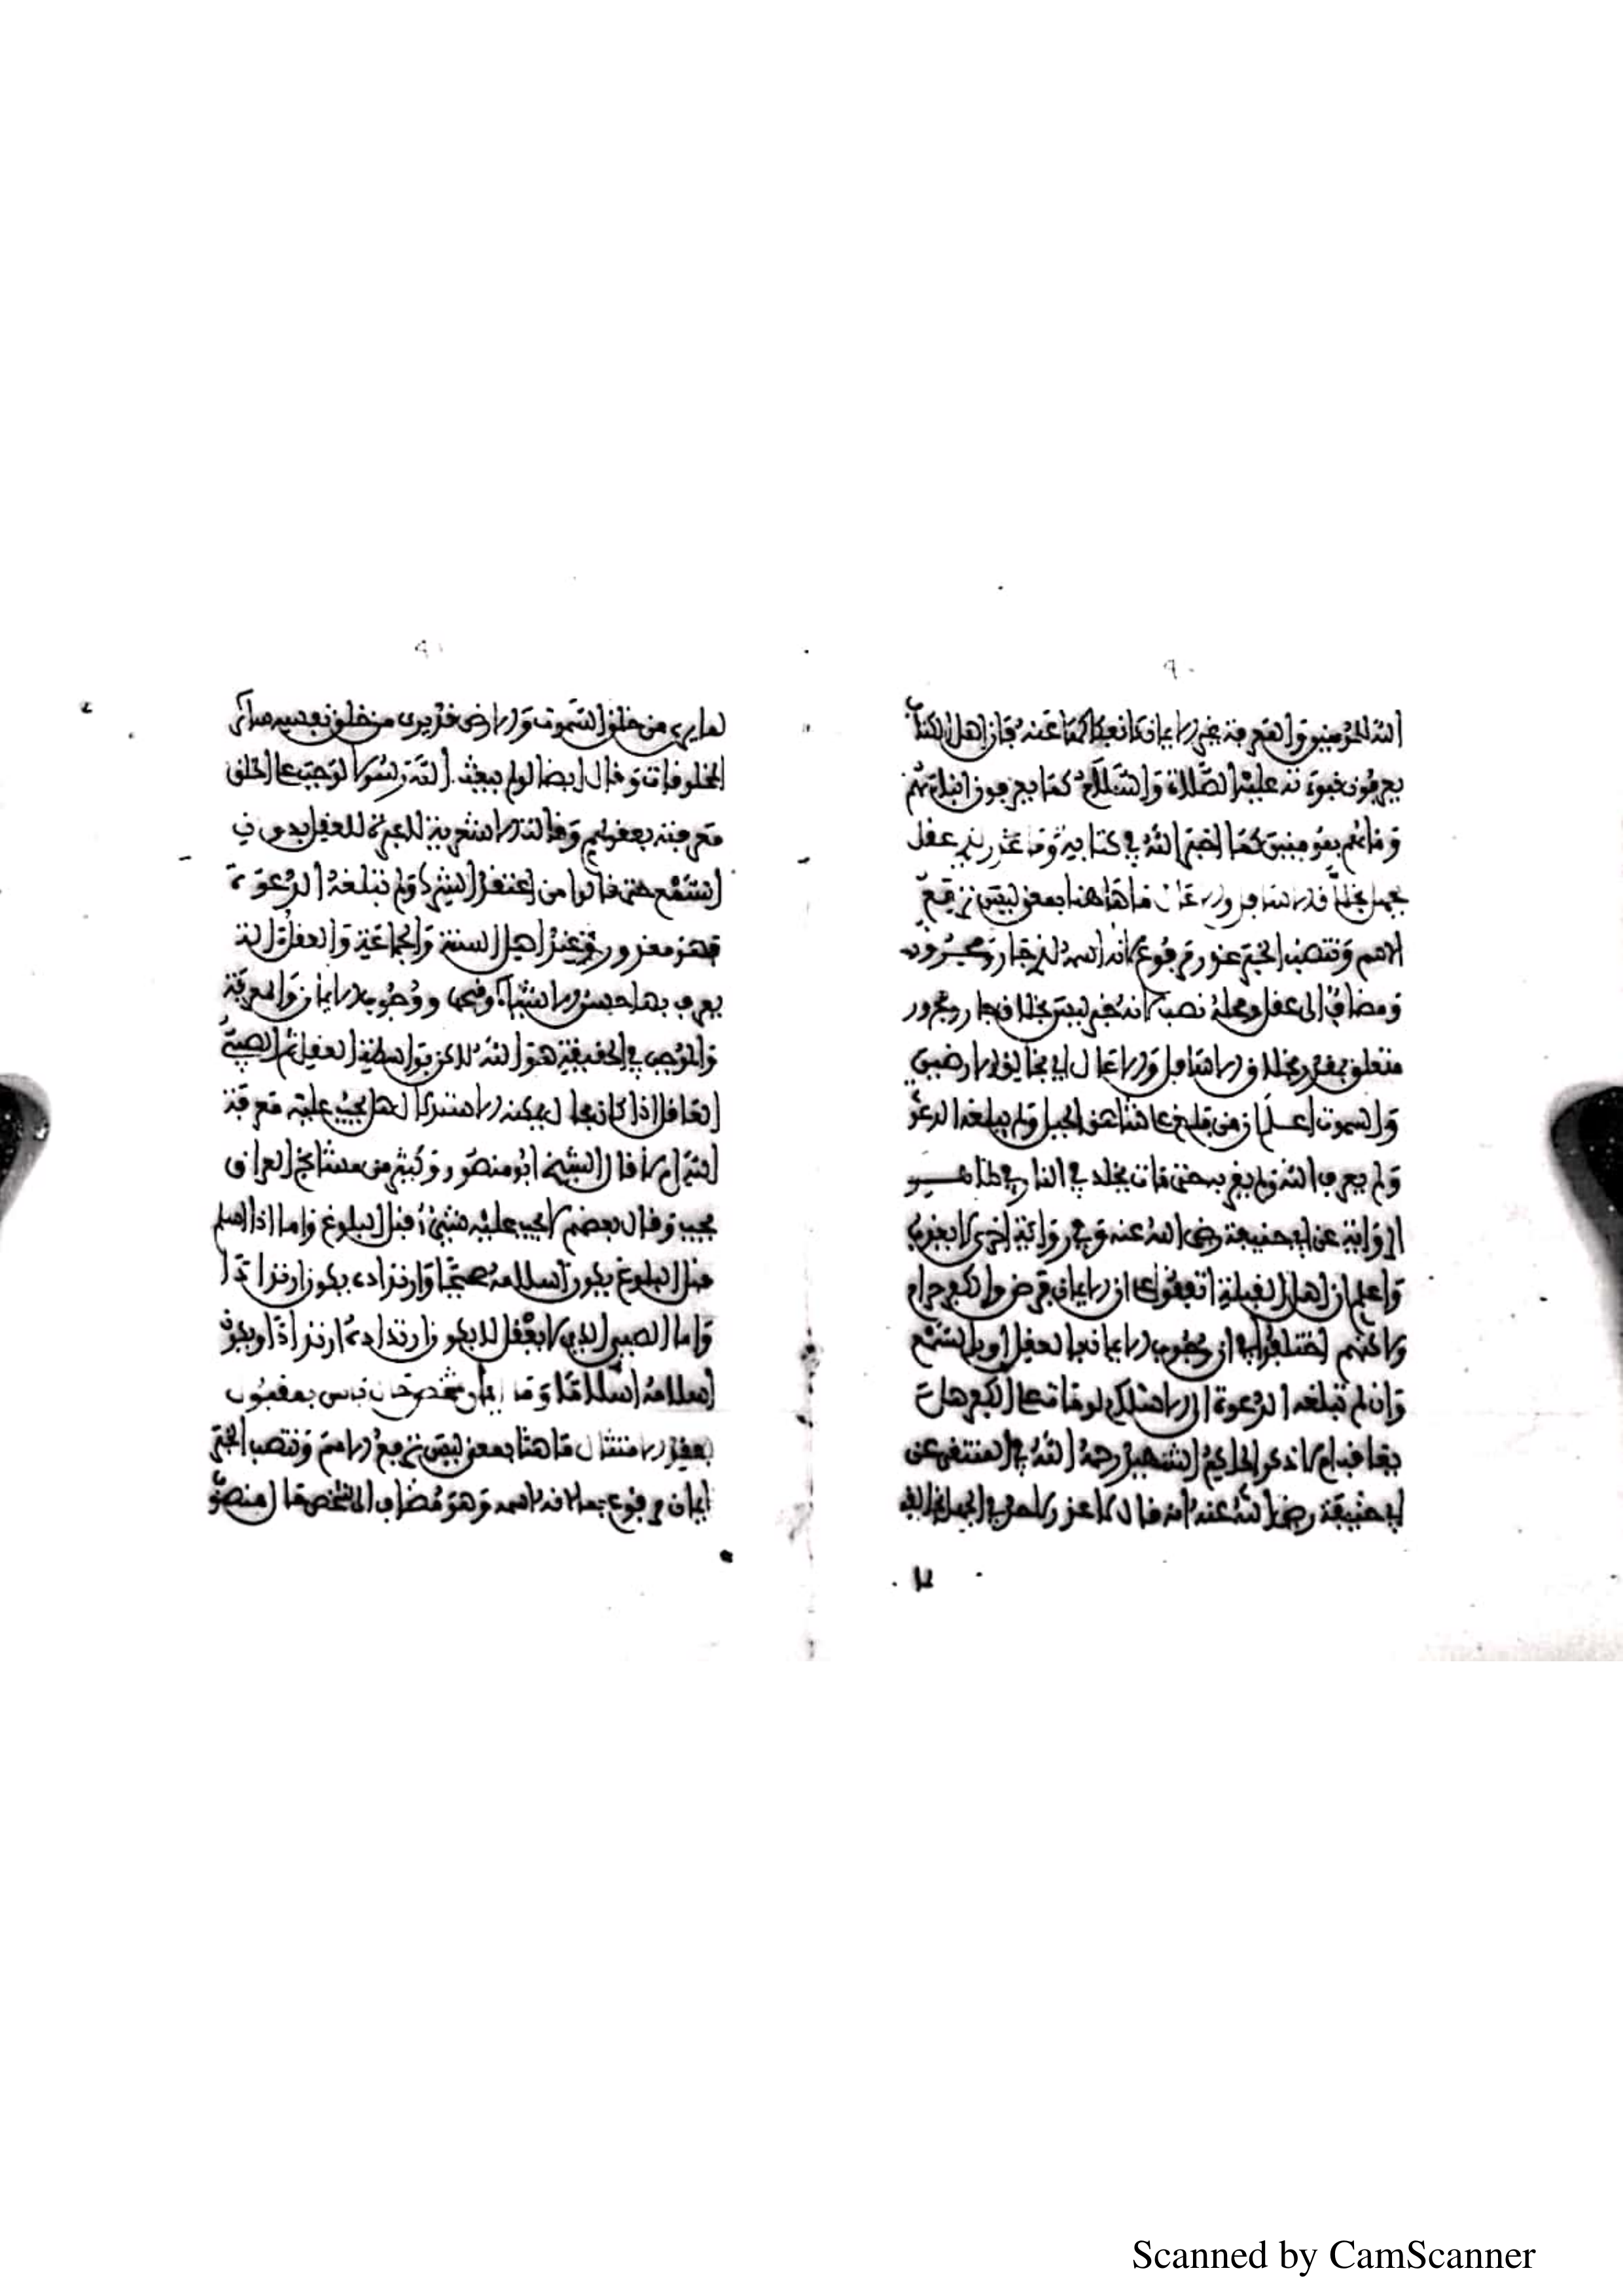 ٩٠
الله المؤمنين والمعرفة غير الايمان كما عنه فان اهل الكتاب
يعرفون نبوته عليه الصلاة والسلام كما يعرفون ابناءهم
وما هم بمؤمنين كما اخبر الله في كتابه وما عذر لذي عقل
بجهل بخلاق الاسافل والاعال ما هاهنا بمعنى ليس ترفع
الاسم وتنصب الخبر عذر مرفوع لانه اسمه لذي جار ومجرور
ومضاف الى عقل ومحله نصب لانه خبر ليس بخلاق جار ومجرور
متعلق بخلاق الاسافل والاعال اي بخالق الارضين
والسموات اعلم ان من بلغ على شاهق الجبل ولم يبلغه الدعوة
ولم يعرف الله ولم يقر به حتى مات يخلد في النار في ظاهر
الرواية عن ابي حنيفة رضي الله عنه وفي رواية اخرى لا يعذب
واعلم ان اهل القبلة اتفقوا على ان الايمان فرض والكفر حرام
ولاكنهم اختلفوا في ان وجوب الايمان بالعقل او بالسمع
وان لم تبلغه الدعوة ان الاستدلال لو مات على الكفر هل
يعاقب ام لا ذكر الحاكم الشهيد رحمه الله في المنتقى عن
ابي حنيفة رضي الله عنه انه قال لا عذر لاحد في الجهل بخالقه
٩١
لما يرى من خلق السموات والارض
المخلوقات وقال ايضا لو لم يبعث الله رسولا لوجب على الخلق
معرفته بعقولهم وقالت الاشعرية لا عبرة للعقل بدون
السمع حتى قالوا من اعتقد الشرك ولم تبلغه الدعوة
فهو معذور وعند اهل السنة والجماعة والعقل الة
يعرف بها حسن الاشياء وقبحها ووجوب الايمان والمعرفة
والموجب في الحقيقة هو الله لاكن بواسطة العقل ثم الصبي
العاقل اذا كان بحال يمكنه الاستدلال هل يجب عليه معرفة
الله ام لا قال الشيخ ابو منصور وكثير من مشايخ العراق
يجب وقال بعضهم لا يجب عليه شيء قبل البلوغ واما اذا اسلم
قبل البلوغ يكون اسلامه صحيحا وارتداده يكون ارتدادا
واما الصبي الذي لا يعقل لا يكون ارتداده ارتدادا ويكون
اسلامه اسلاما وما ايمان شخص حال باس بمقبول
بفقد الامتثال ما هنا بمعنى ليس ترفع الاسم وتنصب الخبر
ايمان مرفوع بما لانه اسمه وهو مضاف الى شخص
Scanned by CamScanner